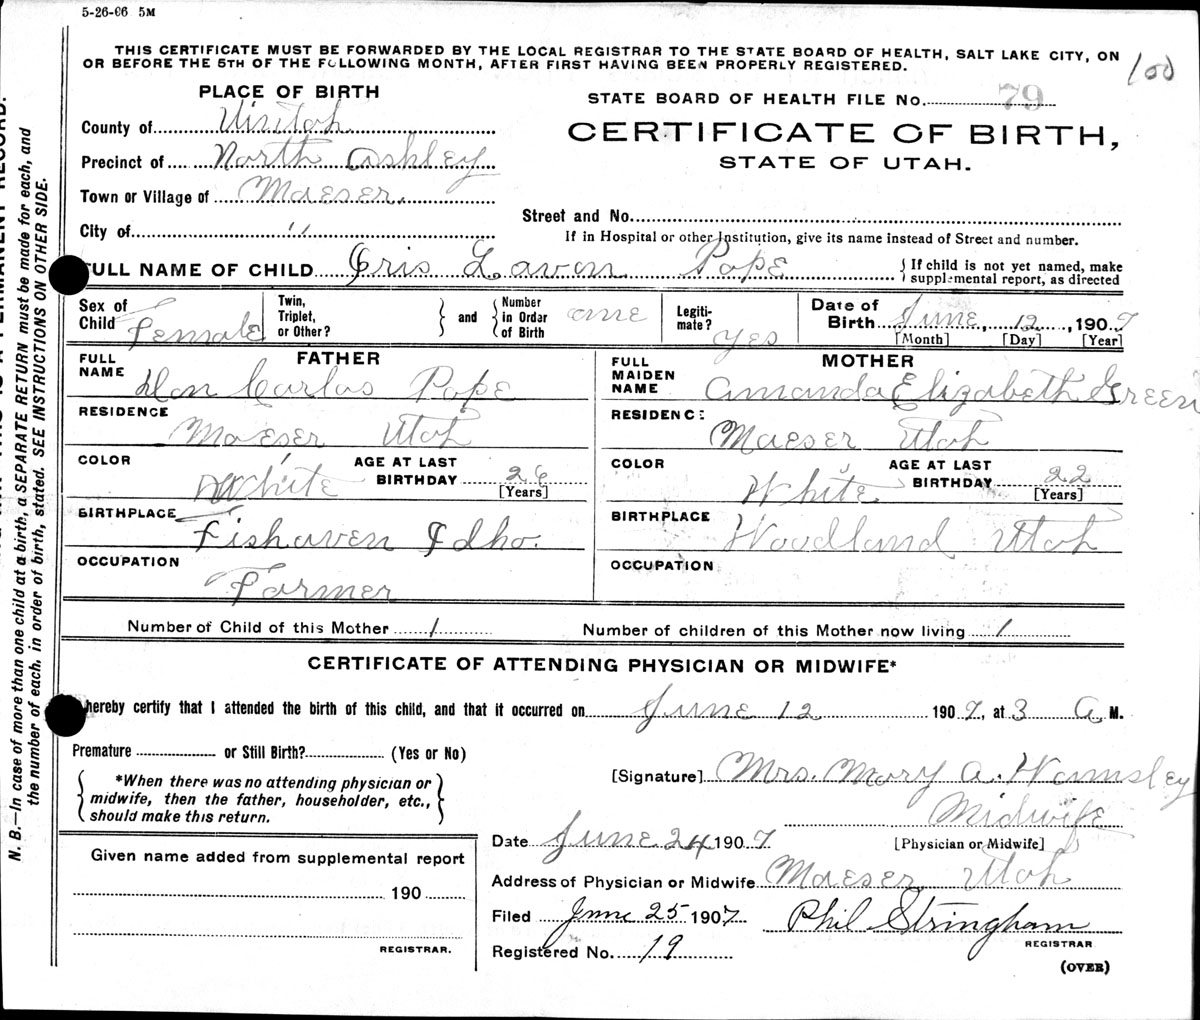 5-26-06 5M
THIS CERTIFICATE MUST BE FORWARDED BY THE LOCAL REGISTRAR TO THE STATE BOARD OF HEALTH, SALT LAKE CITY, ON
OR BEFORE THE 5TH OF THE FOLLOWING MONTH, AFTER FIRST HAVING BEEN PROPERLY REGISTERED.
100
PLACE OF BIRTH
County of Uintah
Precinct of North Ashley
Town or Village of Maeser.
City of "
STATE BOARD OF HEALTH FILE No. 79
CERTIFICATE OF BIRTH,
STATE OF UTAH.
Street and No.
If in Hospital or other Institution, give its name instead of Street and number.
FULL NAME OF CHILD Oris Laven Pope { If child is not yet named, make supplemental report, as directed
Sex of Child Female Twin, Triplet, or Other? } and { Number in Order of Birth one Legitimate? yes Date of Birth June, 12, 1907
[Month] [Day] [Year]
FATHER
FULL NAME Don Carlos Pope
RESIDENCE Maeser Utah
COLOR White AGE AT LAST BIRTHDAY 26
[Years]
BIRTHPLACE Fishaven Idho.
OCCUPATION Farmer
MOTHER
FULL MAIDEN NAME Amanda Elizabeth Green
RESIDENCE: Maeser Utah
COLOR White AGE AT LAST BIRTHDAY 22
[Years]
BIRTHPLACE Woodland Utah
OCCUPATION
Number of Child of this Mother 1 Number of children of this Mother now living 1
CERTIFICATE OF ATTENDING PHYSICIAN OR MIDWIFE*
hereby certify that I attended the birth of this child, and that it occurred on June 12 1907, at 3 A M.
Premature or Still Birth? (Yes or No)
{ *When there was no attending physician or
midwife, then the father, householder, etc.,
should make this return. }
[Signature] Mrs. Mary A. Wamsley
Midwife
[Physician or Midwife]
Date June 24 1907
Address of Physician or Midwife Maeser Utah
Filed June 25 1907 Phil Stringham
REGISTRAR
Registered No. 19
(OVER)
Given name added from supplemental report
190
REGISTRAR.
N. B.—In case of more than one child at a birth, a SEPARATE RETURN must be made for each, and
the number of each, in order of birth, stated. SEE INSTRUCTIONS ON OTHER SIDE.